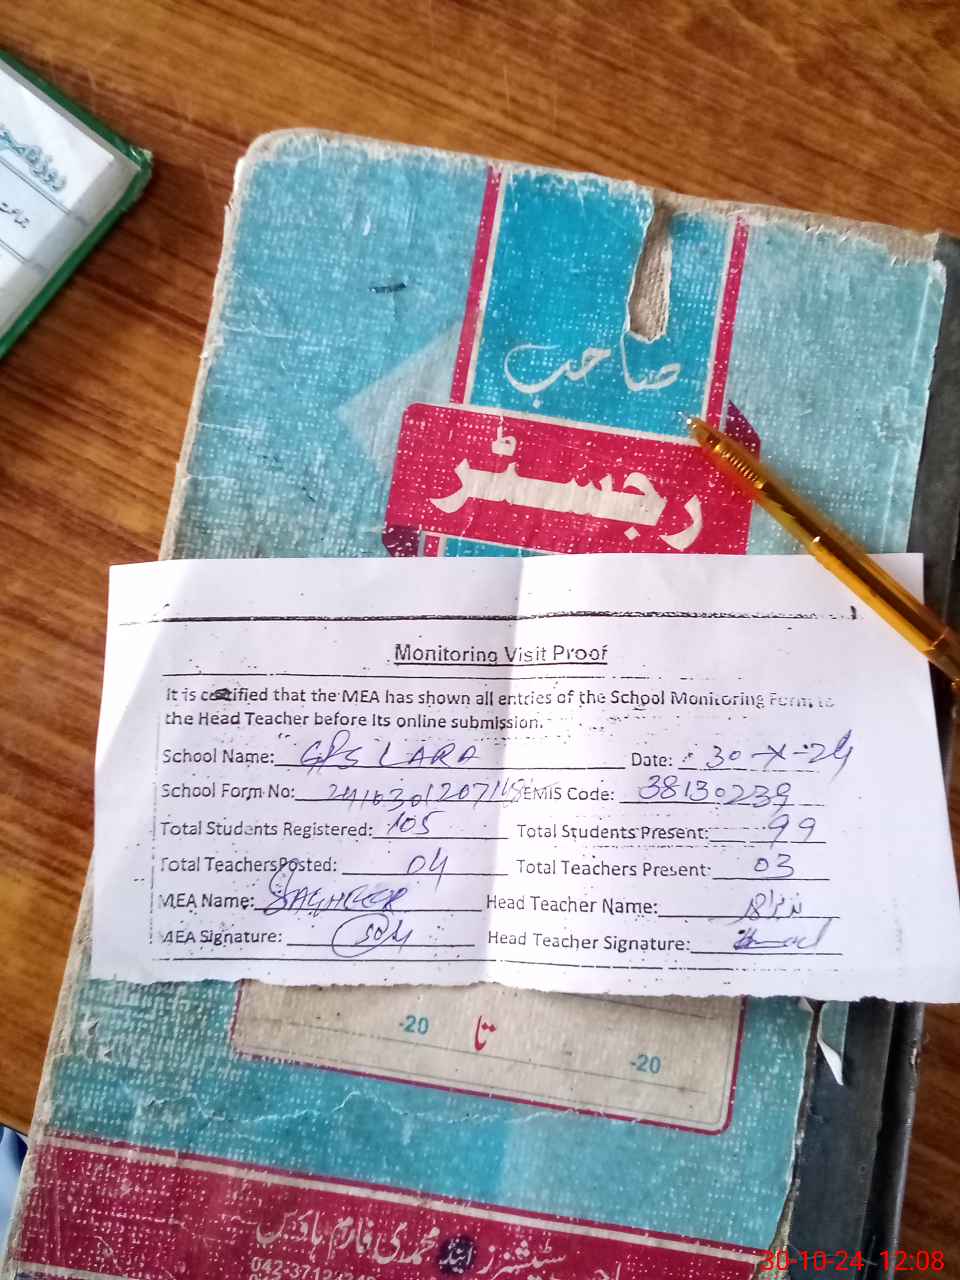 روزنامہ
جماعت
صاحب
رجسٹر
Monitoring Visit Proof
It is certified that the MEA has shown all entries of the School Monitoring Form to
the Head Teacher before its online submission.
School Name: GPS LARA Date: 30-X-24
School Form No: EMIS Code: 38130239
Total Students Registered: 105 Total Students Present: 99
Total Teachers Posted: 04 Total Teachers Present: 03
MEA Name: SAGHEER Head Teacher Name:
MEA Signature: Head Teacher Signature:
-20 تا -20
سٹیشنرز اینڈ محمدی فارم ہاؤس
30-10-24 12:08